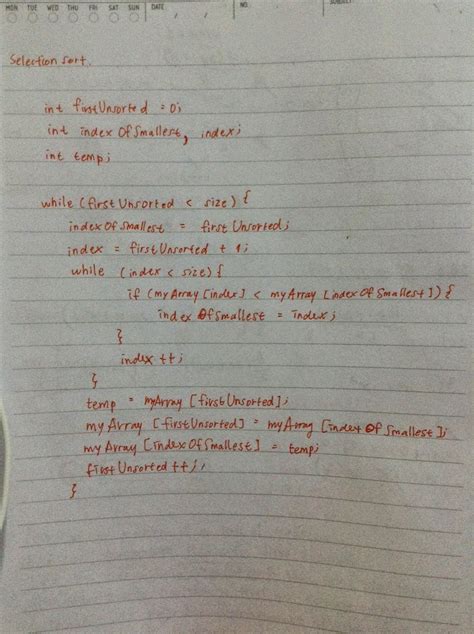 MON TUE WED THU FRI SAT SUN DATE / / NO. SUBJECT:
Selection sort.
int firstUnsorted = 0;
int indexOfSmallest, index;
int temp;
while (firstUnsorted < size) {
indexOfSmallest = firstUnsorted;
index = firstUnsorted + 1;
while (index < size) {
if (myArray [index] < myArray [indexOfSmallest]) {
indexOfSmallest = index;
}
index ++;
}
temp = myArray [firstUnsorted];
myArray [firstUnsorted] = myArray [indexOfSmallest];
myArray [indexOfSmallest] = temp;
firstUnsorted ++;
}